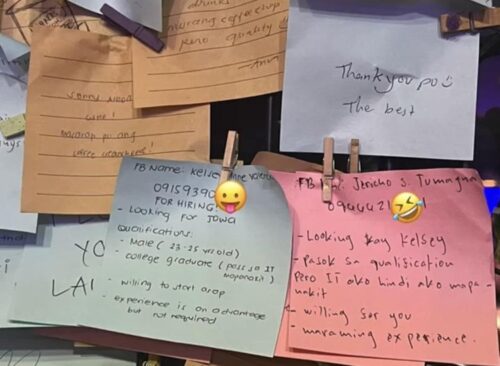 drinks
murang coffee shop
pero quality
Thank you po
The best
masarap po ang
FB Name: Kelsey
09159390
FOR HIRING
- Looking for Jowa
Qualifications:
- Male (23-25 yrs old)
- college graduate (pass sa IT
mapanakit)
- willing to start asap
- experience is an advantage
but not required
FB Jericho S. Tumagan
0944421
- Looking kay Kelsey
- Pasok sa qualification
Pero IT ako hindi ako mapa-
nakit
- willing sayo
- maraming experience.
YO
LAI